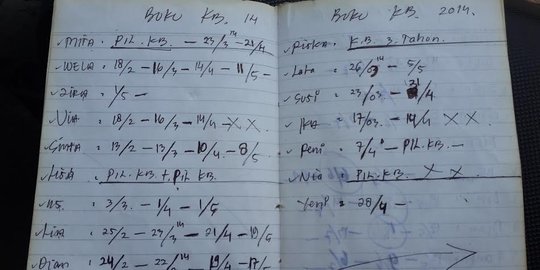 BUKU KB. 14
MITA : PIL. KB. – 23/3 14 – 21/4
WELA : 18/2 – 16/3 – 14/4 – 11/5 –
: 1/5 –
Via : 18/2 – 16/3 – 14/4 – X X
SINTA : 13/2 – 13/3 – 10/4 – 8/5
: PIL. KB. + PIL KB.
: 3/3. – 1/4 – 1/5
: 25/2 – 23/3 14 – 21/4 – 19/5
: 24/2 – 22/2 14 – 19/4 – 17/5
BUKU KB. 2014.
Riska : K.B. 3. Tahun.
Lala = 26/3 14 – 5/5
SUSI : 23/03 – 21/4.
Ika : 17/03. – 14/4 X X
Reni : 7/4 – PIL. KB. –
Nia = PIL. KB. X X
Yeni = 28/4 –